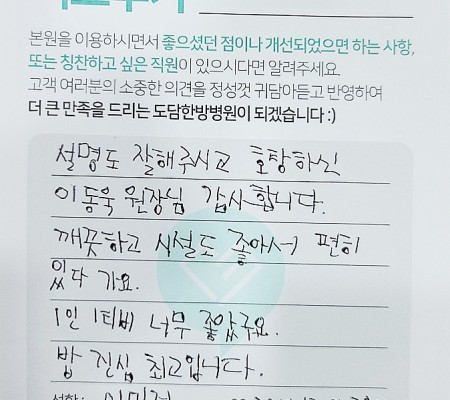 본원을 이용하시면서 좋으셨던 점이나 개선되었으면 하는 사항,
또는 칭찬하고 싶은 직원이 있으시다면 알려주세요.
고객 여러분의 소중한 의견을 정성껏 귀담아듣고 반영하여
더 큰 만족을 드리는 도담한방병원이 되겠습니다 :)
설명도 잘해주시고 호탕하신
이동욱 원장님 감사합니다.
깨끗하고 시설도 좋아서 편히
있다 가요.
1인 1티비 너무 좋았구요.
밥 진심 최고입니다.